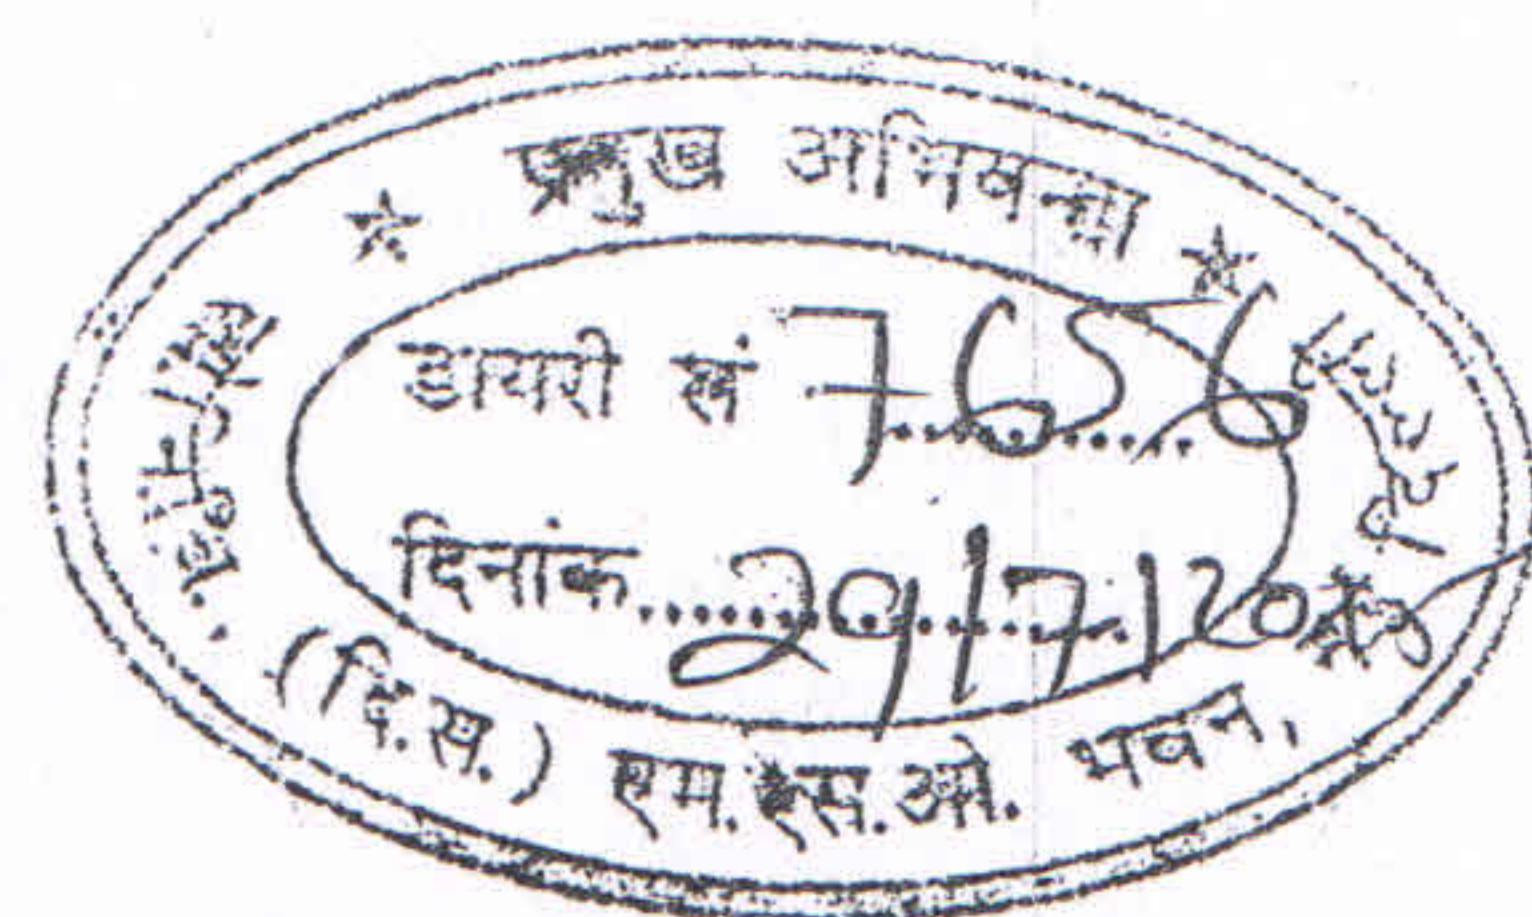 प्रमुख अभियन्ता
डायरी सं 7656
दिनांक 29/7/20
लो.नि.वि.
(दि.स.) एम.एस.ओ. भवन,